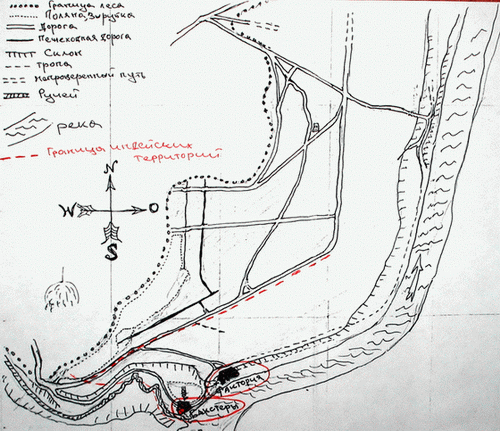 Граница леса
Поляна, вырубка
Дорога
Пешеходная дорога
Склон
тропа
непроверенный путь
Ручей
река
Граница индейских
территорий
N
W
O
S
Фактория
Бакстеры